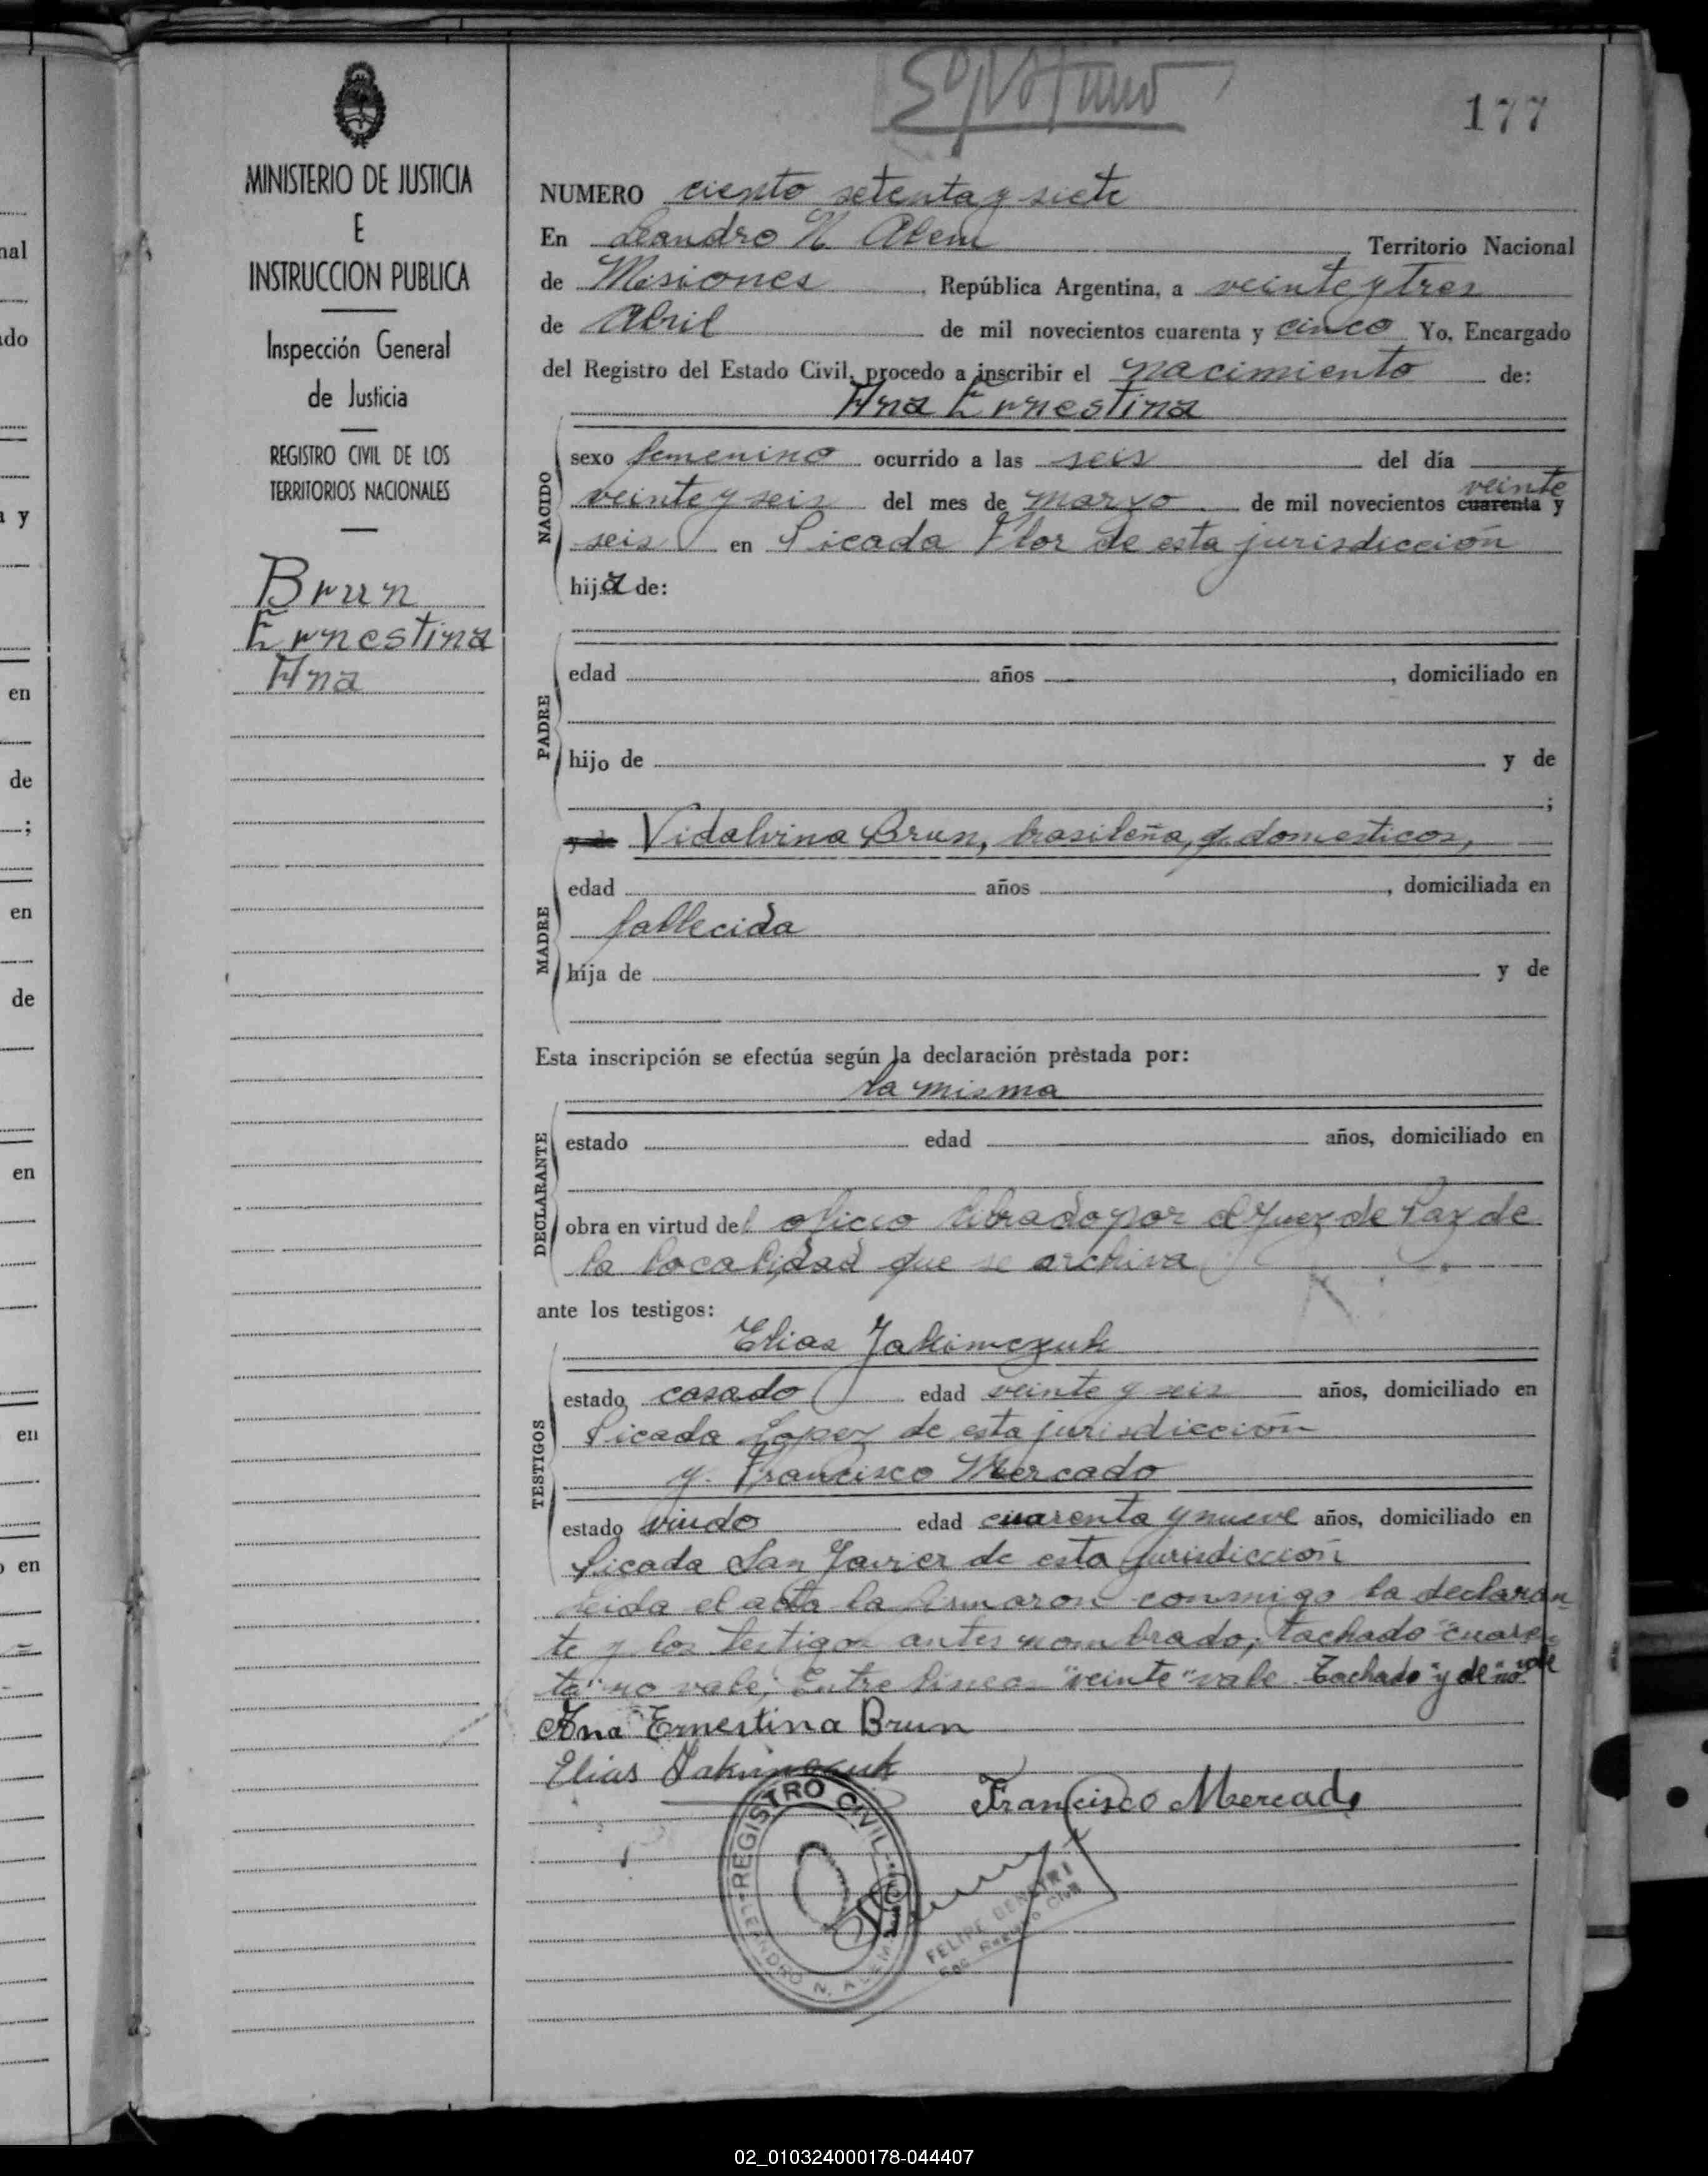 177
MINISTERIO DE JUSTICIA
E
INSTRUCCION PUBLICA
Inspección General
de Justicia
REGISTRO CIVIL DE LOS
TERRITORIOS NACIONALES
Brun
Ernestina
Ana
NUMERO ciento setenta y siete
En Leandro N Alem Territorio Nacional
de Misiones, República Argentina, a veinte y tres
de Abril de mil novecientos cuarenta y cinco Yo, Encargado
del Registro del Estado Civil, procedo a inscribir el nacimiento de:
Ana Ernestina
NACIDO
sexo femenino ocurrido a las seis del día
veinte y seis del mes de marzo de mil novecientos cuarenta veinte y
seis en Picada Flor de esta jurisdicción
hija de:
PADRE
edad años , domiciliado en
hijo de y de
;
MADRE
y de Vidalvina Brun, brasileña, q. domesticos,
edad años , domiciliada en
fallecida
hija de y de
Esta inscripción se efectúa según la declaración prestada por:
la misma
DECLARANTE
estado edad años, domiciliado en
obra en virtud del oficio librado por el Juez de Paz de
la localidad que se archiva
ante los testigos:
TESTIGOS
Elias Jakimczuk
estado casado edad veinte y seis años, domiciliado en
Picada Lopez de esta jurisdicción
y. Francisco Mercado
estado viudo edad cuarenta y nueve años, domiciliado en
Picada San Javier de esta jurisdicción
Leida el acta la firmaron conmigo la declaran
te y los testigos antes nombrado; tachado "cuaren
ta" no vale; Entre linea "veinte" vale. Tachado "y de" no vale
Ana Ernestina Brun
Elias Jakimczuk
Francisco Mercado
REGISTRO CIVIL
LEANDRO N. ALEM
FELIPE
Enc. Registro Civil
02_010324000178-044407